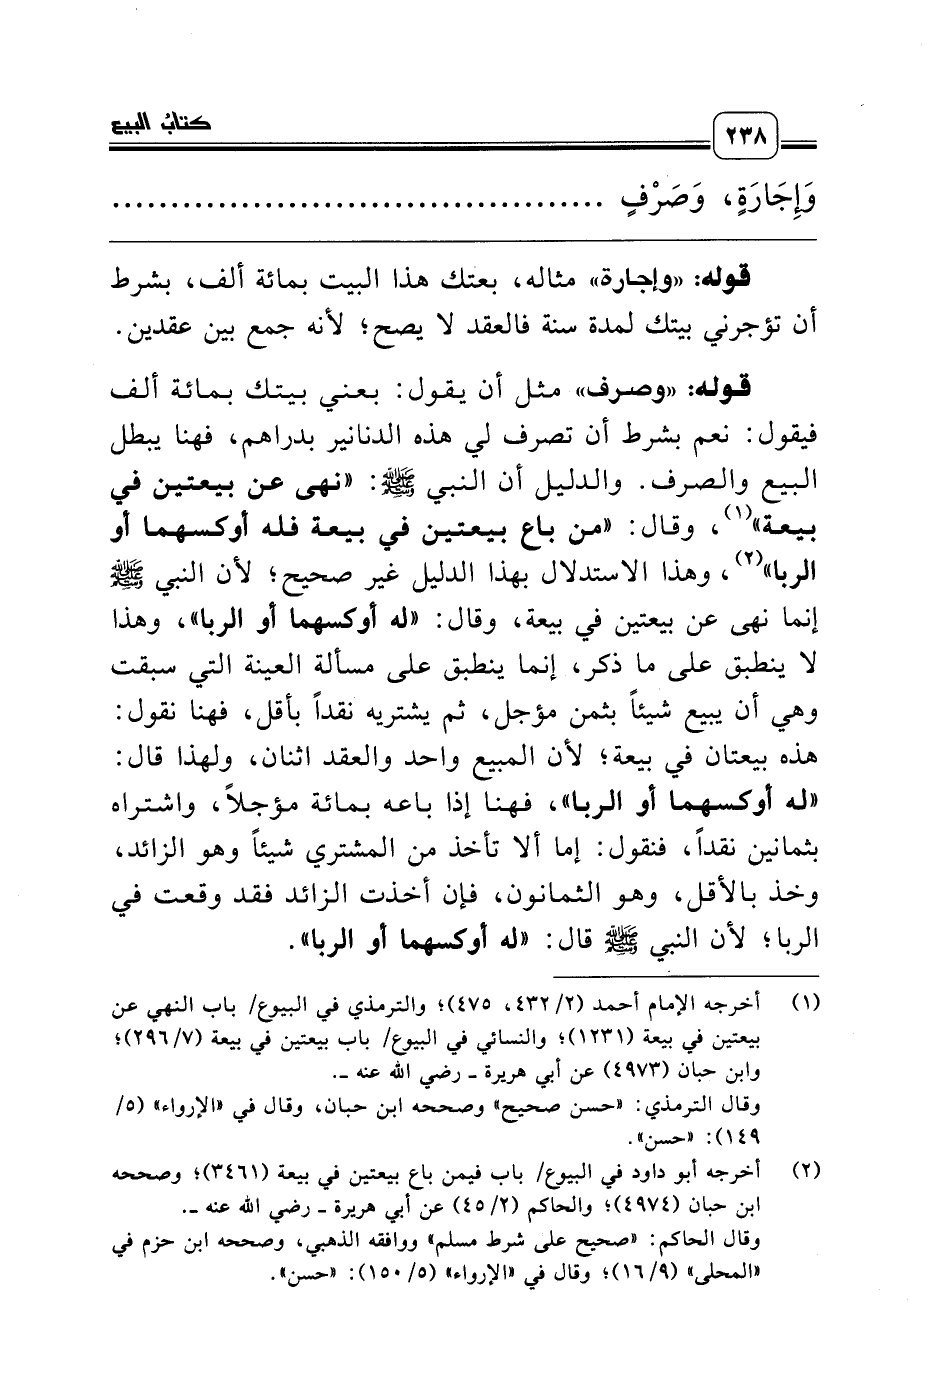 كتابُ البيع
٢٣٨
وَإِجَارَةٍ، وَصَرْفٍ ..........................................
قوله: «وإجارة» مثاله، بعتك هذا البيت بمائة ألف، بشرط
أن تؤجرني بيتك لمدة سنة فالعقد لا يصح؛ لأنه جمع بين عقدين.
قوله: «وصرف» مثل أن يقول: بعني بيتك بمائة ألف
فيقول: نعم بشرط أن تصرف لي هذه الدنانير بدراهم، فهنا يبطل
البيع والصرف. والدليل أن النبي ﷺ: «نهى عن بيعتين في
بيعة»(١)، وقال: «من باع بيعتين في بيعة فله أوكسهما أو
الربا»(٢)، وهذا الاستدلال بهذا الدليل غير صحيح؛ لأن النبي ﷺ
إنما نهى عن بيعتين في بيعة، وقال: «له أوكسهما أو الربا»، وهذا
لا ينطبق على ما ذكر، إنما ينطبق على مسألة العينة التي سبقت
وهي أن يبيع شيئاً بثمن مؤجل، ثم يشتريه نقداً بأقل، فهنا نقول:
هذه بيعتان في بيعة؛ لأن المبيع واحد والعقد اثنان، ولهذا قال:
«له أوكسهما أو الربا»، فهنا إذا باعه بمائة مؤجلاً، واشتراه
بثمانين نقداً، فنقول: إما ألا تأخذ من المشتري شيئاً وهو الزائد،
وخذ بالأقل، وهو الثمانون، فإن أخذت الزائد فقد وقعت في
الربا؛ لأن النبي ﷺ قال: «له أوكسهما أو الربا».
(١) أخرجه الإمام أحمد (٢/ ٤٣٢، ٤٧٥)؛ والترمذي في البيوع/ باب النهي عن
بيعتين في بيعة (١٢٣١)؛ والنسائي في البيوع/ باب بيعتين في بيعة (٧/ ٢٩٦)؛
وابن حبان (٤٩٧٣) عن أبي هريرة ـ رضي الله عنه ـ.
وقال الترمذي: «حسن صحيح» وصححه ابن حبان، وقال في «الإرواء» (٥/
١٤٩): «حسن».
(٢) أخرجه أبو داود في البيوع/ باب فيمن باع بيعتين في بيعة (٣٤٦١)؛ وصححه
ابن حبان (٤٩٧٤)؛ والحاكم (٢/ ٤٥) عن أبي هريرة ـ رضي الله عنه ـ.
وقال الحاكم: «صحيح على شرط مسلم» ووافقه الذهبي، وصححه ابن حزم في
«المحلى» (٩/ ١٦)؛ وقال في «الإرواء» (٥/ ١٥٠): «حسن».